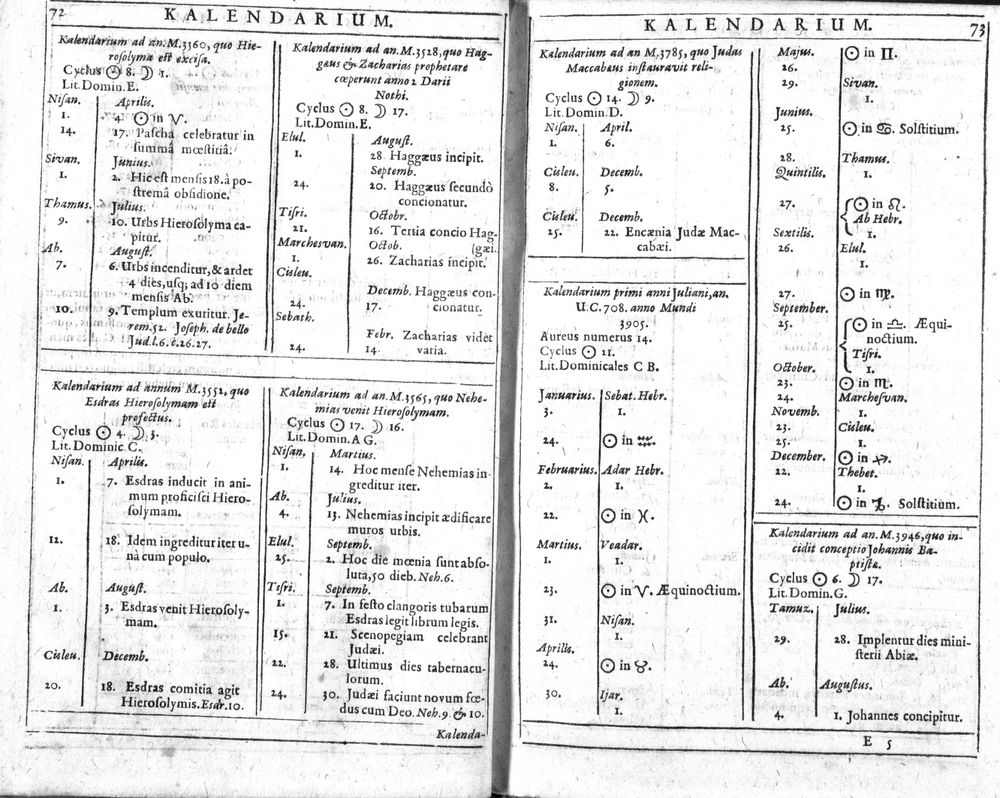 72 KALENDARIUM.
Kalendarium ad an.M.3360, quo Hie-
rosolyma est excisa.
Cyclus ☉ 8. ☽ 1.
Lit. Domin. E.
Nisan. Aprilis.
1. 4. ☉ in ♈.
14. 17. Pascha celebratur in
summâ mœstitiâ.
Sivan. Junius.
1. 2. Hic est mensis 18. à po-
stremâ obsidione.
Thamus. Julius.
9. 10. Urbs Hierosolyma ca-
pitur.
Ab. August.
7. 6. Urbs incenditur, & ardet
4 dies, usq; ad 10 diem
mensis Ab.
10. 9. Templum exuritur. Je-
rem. 52. Joseph. de bello
Jud.l.6.c.26.27.
Kalendarium ad an.M.3528, quo Hag-
gæus & Zacharias prophetare
cœperunt anno 2 Darii
Nothi.
Cyclus ☉ 8. ☽ 17.
Lit. Domin. E.
Elul. August.
1. 28 Haggæus incipit.
Septemb.
24. 20. Haggæus secundò
concionatur.
Tisri. Octobr.
21. 16. Tertia concio Hag-
Marchesvan. Octob. (gæi.
1. 26. Zacharias incipit.
Cisleu.
Decemb. Haggæus con-
24. 17. cionatur.
Sebath.
Febr. Zacharias videt
24. 14 varia.
Kalendarium ad annum M.3552, quo
Esdras Hierosolymam est
profectus.
Cyclus ☉ 4. ☽ 3.
Lit. Dominic C.
Nisan. Aprilis.
1. 7. Esdras inducit in ani-
mum proficisci Hiero-
solymam.
12. 18. Idem ingreditur iter u-
nà cum populo.
Ab. August.
1. 3. Esdras venit Hierosoly-
mam.
Cisleu. Decemb.
20. 18. Esdras comitia agit
Hierosolymis. Esdr. 10.
Kalendarium ad an.M.3565, quo Nehe-
mias venit Hierosolymam.
Cyclus ☉ 17. ☽ 16.
Lit. Domin. A G.
Nisan. Martius.
1. 14. Hoc mense Nehemias in-
greditur iter.
Ab. Julius.
4. 13. Nehemias incipit ædificare
muros urbis.
Elul. Septemb.
25. 2. Hoc die mœnia sunt abso-
luta, 50 dieb. Neh. 6.
Tisri. Septemb.
1. 7. In festo clangoris tubarum
Esdras legit librum legis.
15. 21. Scenopegiam celebrant
Judæi.
22. 28. Ultimus dies tabernacu-
lorum.
24. 30. Judæi faciunt novum fœ-
dus cum Deo. Neh. 9 & 10.
Kalenda-
KALENDARIUM. 73
Kalendarium ad an M.3785, quo Judas
Maccabæus instauravit reli-
gionem.
Cyclus ☉ 14. ☽ 9.
Lit. Domin. D.
Nisan. April.
1. 6.
Cisleu. Decemb.
8. 5.
Cisleu. Decemb.
25. 22. Encænia Judæ Mac-
cabæi.
Kalendarium primi anni Juliani, an.
U.C. 708. anno Mundi
3905.
Aureus numerus 14.
Cyclus ☉ 11.
Lit. Dominicales C B.
Januarius. Sebat. Hebr.
3. 1.
24. ☉ in ♒.
Februarius. Adar Hebr.
2. 1.
22. ☉ in ♓.
Martius. Veadar.
1. 1.
23. ☉ in ♈. Æquinoctium.
31. Nisan.
1.
Aprilis.
24. ☉ in ♉.
30. Ijar.
1.
Majus. ☉ in ♊.
26.
29. Sivan.
1.
Junius.
25. ☉ in ♋. Solstitium.
28. Thamus.
Quintilis. 1.
27. ☉ in ♌.
Ab Hebr.
Sextilis. 1.
26. Elul.
1.
27. ☉ in ♍.
September.
25. ☉ in ♎. Æqui-
noctium.
Tisri.
October. 1.
23. ☉ in ♏.
24. Marchesvan.
Novemb. 1.
23. Cisleu.
25. 1.
December. ☉ in ♐.
22. Thebet.
1.
24. ☉ in ♑. Solstitium.
Kalendarium ad an.M.3946, quo in-
cidit conceptio Johannis Ba-
ptistæ.
Cyclus ☉ 6. ☽ 17.
Lit. Domin. G.
Tamuz. Julius.
29. 28. Implentur dies mini-
sterii Abiæ.
Ab. Augustus.
4. 1. Johannes concipitur.
E 5